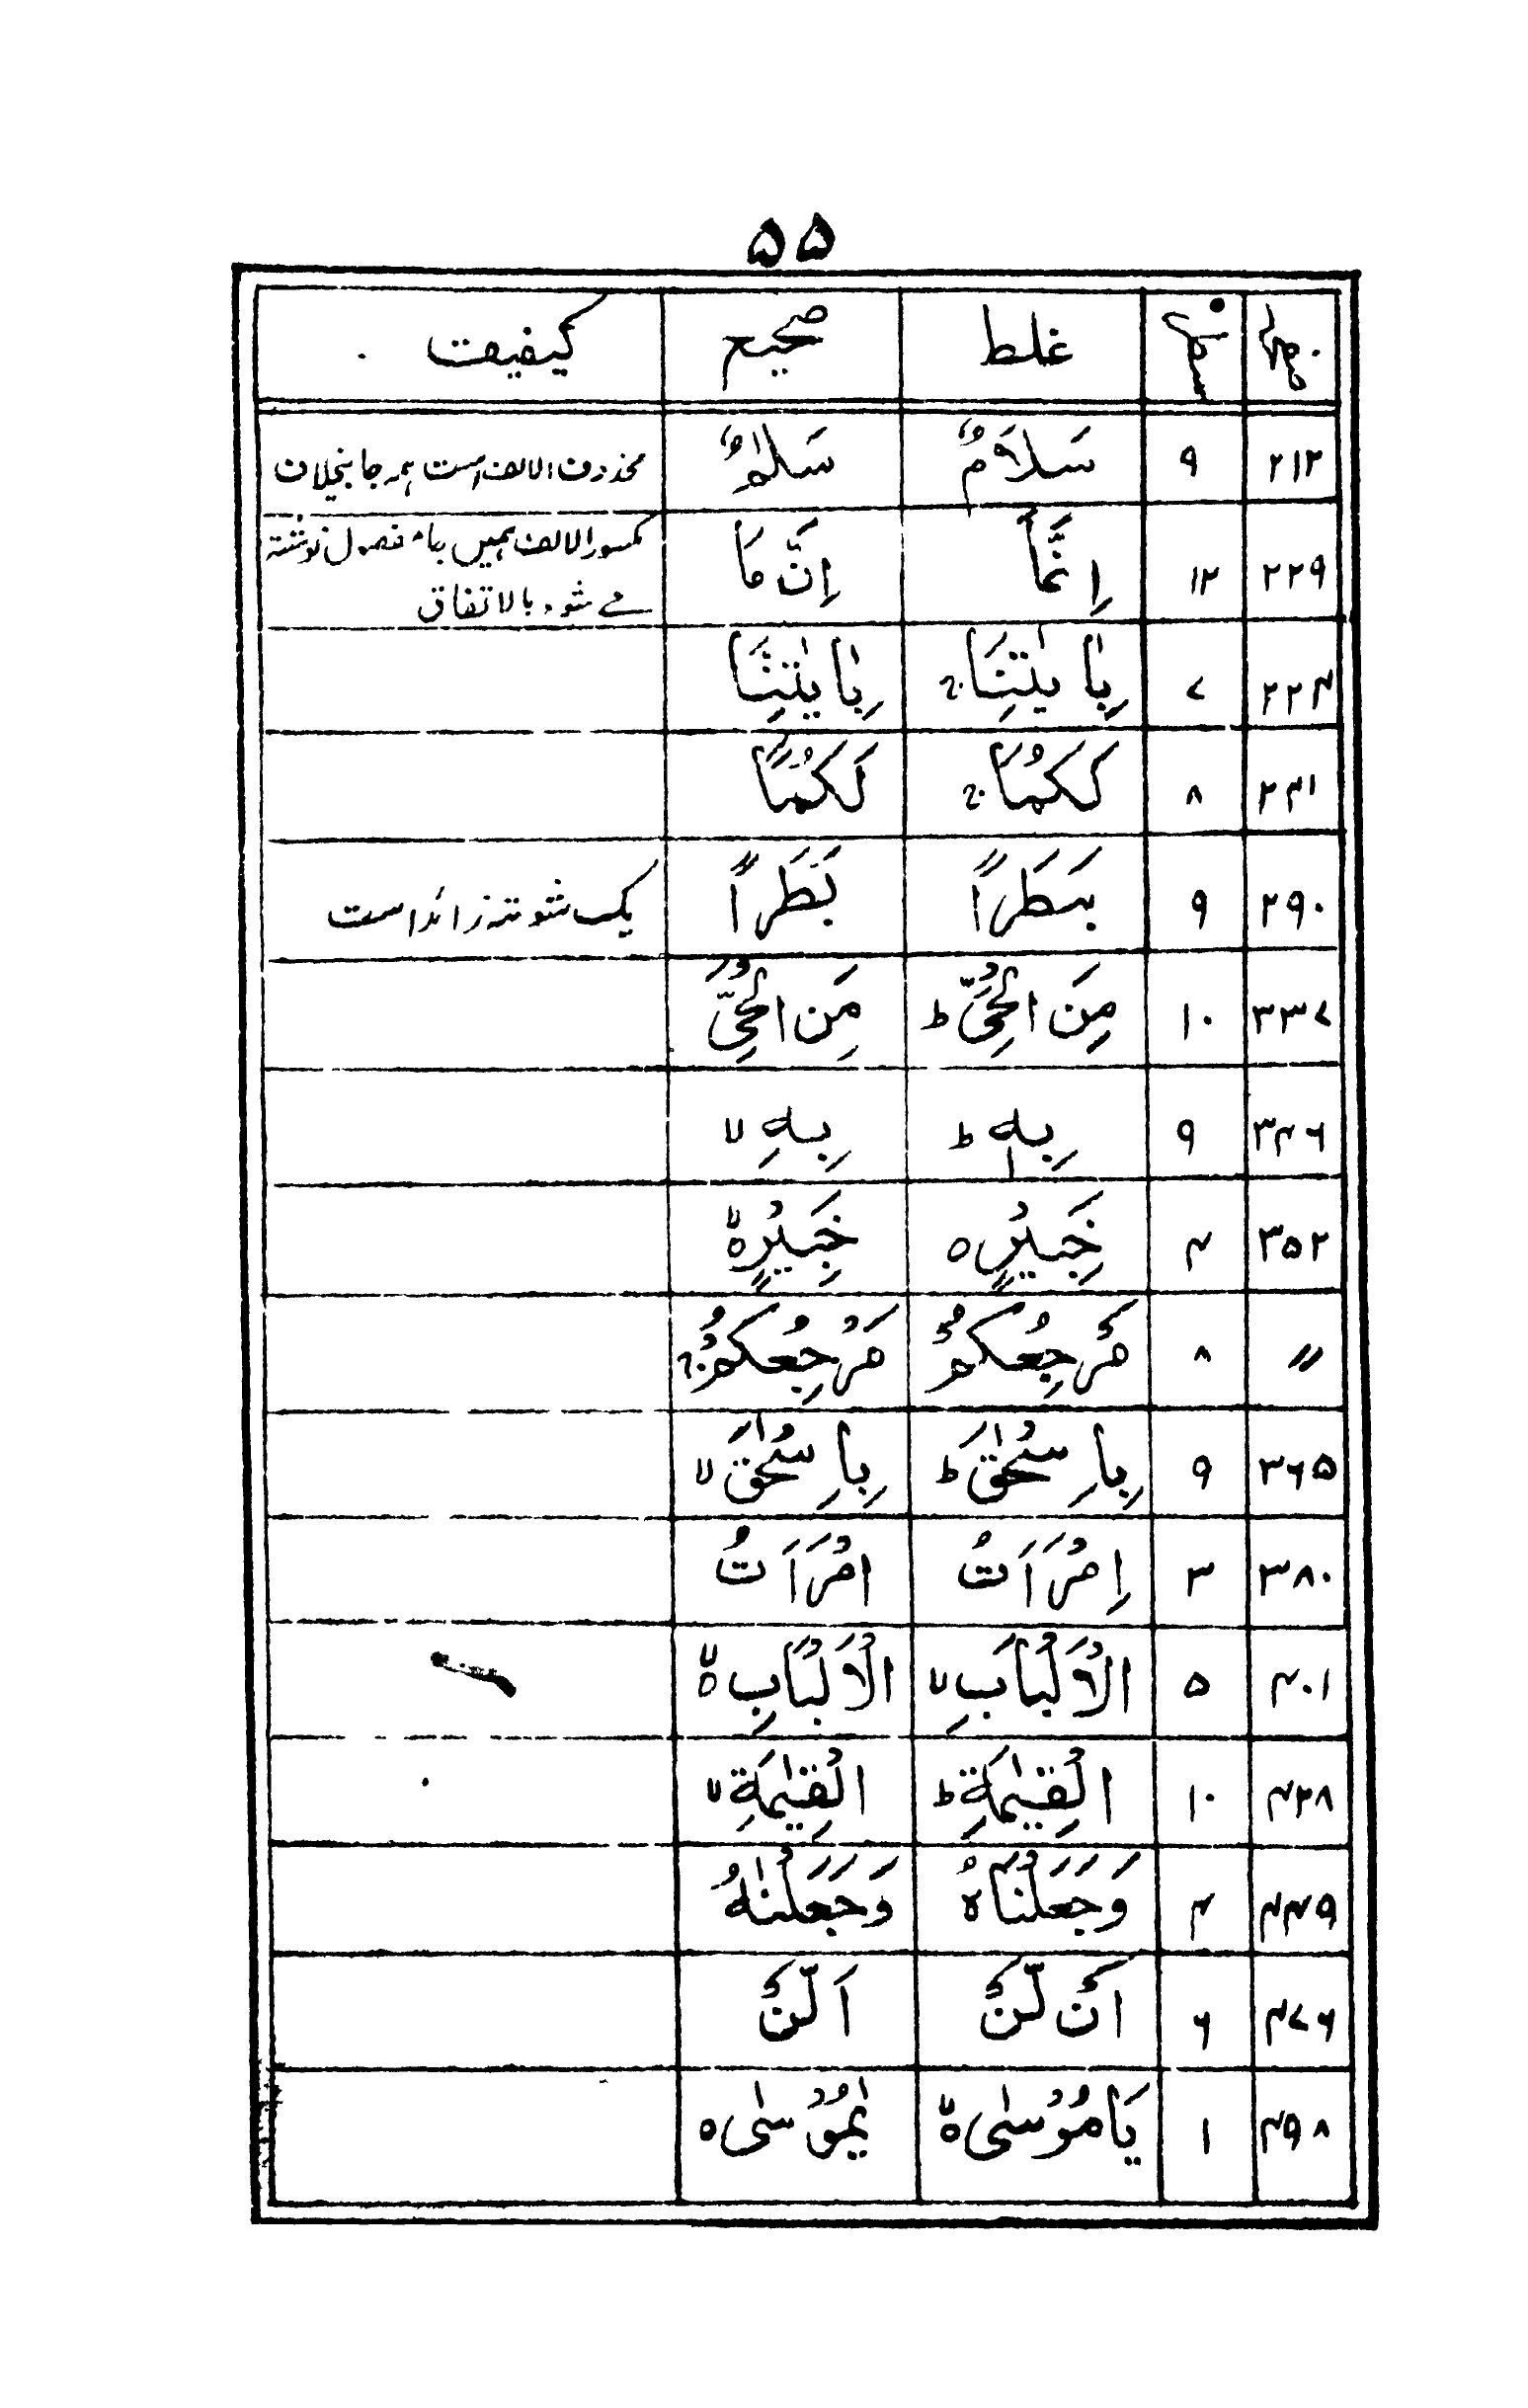 ۵۵
صفحہ سطر غلط صحیح کیفیت
۲۱۲ ۹ سَلاَمٌ سَلٰمٌ محذوف الالف است ہمہ جا بخلاف
۲۲۹ ۱۲ اِنَّمَا اِنَّ مَا مکسور الالف ہمیں یا مفصول نوشتہ
مے شود بالاتفاق
۲۲۴ ۷ بِاٰيٰتِنَا ج بِاٰيٰتِنَا
۲۴۱ ۸ لَكُمَا ج لَكُمَا
۲۹۰ ۹ بسَطَرًا بَطَرًا یک شوشہ زائد است
۳۳۷ ۱۰ مِنَ الْحَيِّ ط مِنَ الْحَيِّ
۳۴۶ ۹ بِهٖ ط بِهِ لا
۳۵۲ ۴ خَبِيْرٍ ه خَبِيْرٍ ه لا
〃 ۸ مَرْجِعُكُمْ مَرْجِعُكُمْ ج
۳۶۵ ۹ بِاِسْحٰقَ ط بِاِسْحٰقَ لا
۳۸۰ ۳ اِمْرَاَتُ امْرَاَتُ
۴۰۱ ۵ الْاَلْبَابِ لا الْاَلْبَابِ ه لا
۴۲۸ ۱۰ الْقِيٰمَةِ ط الْقِيٰمَةِ لا
۴۴۹ ۴ وَجَعَلْنَاهُ وَجَعَلْنٰهُ
۴۷۶ ۶ اَنْ لَّنْ اَلَّنْ
۴۹۸ ۱ يَامُوْسٰى ه لا يٰمُوْسٰى ه